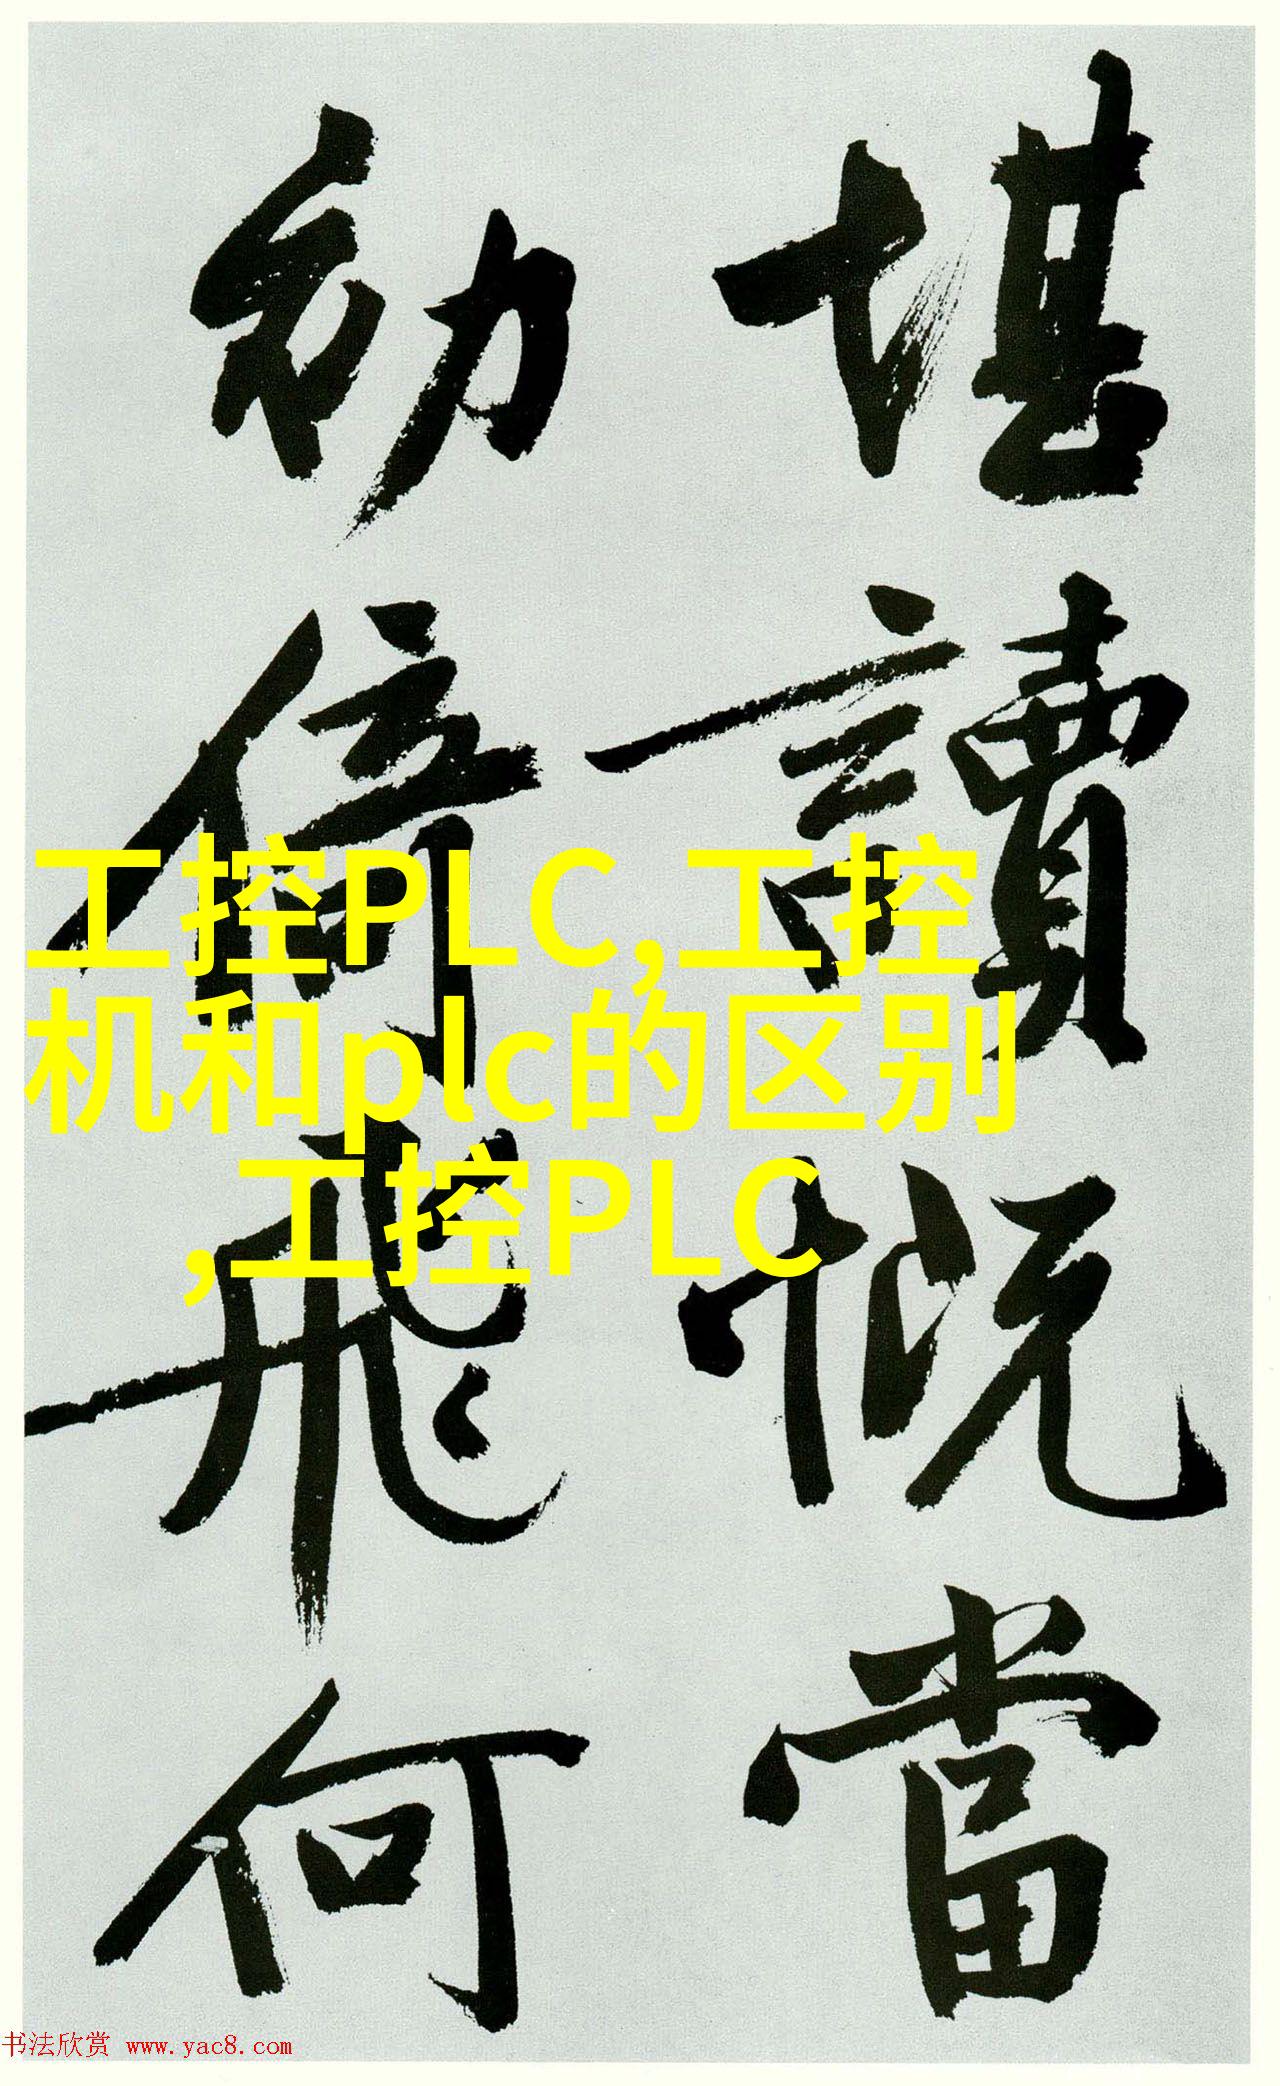 堪讀慨當
幼倚飛何
工控PLC,工控
机和plc的区别
,工控PLC
书法欣赏 www.yac8.com